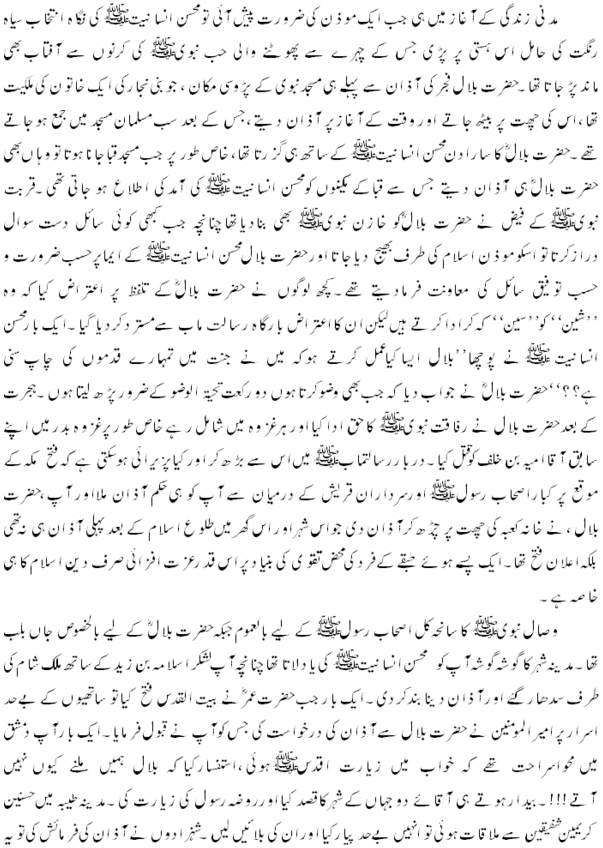 مدنی زندگی کے آغاز میں ہی جب ایک موذن کی ضرورت پیش آئی تو محسن انسانیت ﷺ کی نگاہ انتخاب سیاہ
رنگت کی حامل اس ہستی پر پڑی جس کے چہرے سے پھوٹنے والی حب نبوی ﷺ کی کرنوں سے آفتاب بھی
ماند پڑ جاتا تھا۔ حضرت بلال فجر کی آذان سے پہلے ہی مسجد نبوی کے پڑوسی مکان، جو بنی نجار کی ایک خاتون کی ملکیت
تھا، اس کی چھت پر بیٹھ جاتے اور وقت کے آغاز پر آذان دیتے، جس کے بعد سب مسلمان مسجد میں جمع ہو جاتے
تھے۔ حضرت بلالؓ کا سارا دن محسن انسانیت ﷺ کے ساتھ ہی گزرتا تھا، خاص طور پر جب مسجد قبا جانا ہوتا تو وہاں بھی
حضرت بلالؓ ہی آذان دیتے جس سے قبا کے مکینوں کو محسن انسانیت ﷺ کی آمد کی اطلاع ہو جاتی تھی۔ قربت
نبوی ﷺ کے فیض نے حضرت بلالؓ کو خازن نبوی ﷺ بھی بنا دیا تھا چنانچہ جب کبھی کوئی سائل دست سوال
دراز کرتا تو اسکو موذن اسلام کی طرف بھیج دیا جاتا اور حضرت بلال محسن انسانیت ﷺ کے ایما پر حسب ضرورت و
حسب توفیق سائل کی معاونت فرما دیتے تھے۔ کچھ لوگوں نے حضرت بلالؓ کے تلفظ پر اعتراض کیا کہ وہ
’’شین‘‘ کو ’’سین‘‘ کہ کر ادا کرتے ہیں لیکن ان کا اعتراض بارگاہ رسالت ماب سے مسترد کر دیا گیا۔ ایک بار محسن
انسانیت ﷺ نے پوچھا ’’بلال ایسا کیا عمل کرتے ہو کہ میں نے جنت میں تمہارے قدموں کی چاپ سنی
ہے؟؟‘‘ حضرت بلالؓ نے جواب دیا کہ جب بھی وضو کرتا ہوں دو رکعت تحیۃ الوضو کے ضرور پڑھ لیتا ہوں۔ ہجرت
کے بعد حضرت بلال نے رفاقت نبوی ﷺ کا حق ادا کیا اور ہر غزوہ میں شامل رہے خاص طور پر غزوہ بدر میں اپنے
سابق آقا امیہ بن خلف کو قتل کیا۔ دربار رسالتماب ﷺ میں اس سے بڑھ کر اور کیا پزیرائی ہو سکتی ہے کہ فتح مکہ کے
موقع پر کبار اصحاب رسول ﷺ اور سرداران قریش کے درمیان سے آپ کو ہی حکم آذان ملا اور آپ، حضرت
بلال، نے خانہ کعبہ کی چھت پر چڑھ کر آذان دی جو اس شہر اور اس گھر میں طلوع اسلام کے بعد پہلی آذان ہی نہ تھی
بلکہ اعلان فتح تھا۔ ایک پسے ہوئے طبقے کے فرد کی محض تقوی کی بنیاد پر اس قدر عزت افزائی صرف دین اسلام کا ہی
خاصہ ہے۔
وصال نبوی ﷺ کا سانحہ کل اصحاب رسول ﷺ کے لیے بالعموم جبکہ حضرت بلالؓ کے لیے بالخصوص جاں بلب
تھا۔ مدینہ شہر کا گوشہ گوشہ آپ کو محسن انسانیت ﷺ کی یاد دلاتا تھا چنانچہ آپ لشکر اسامہ بن زید کے ساتھ ملک شام کی
طرف سدھار گئے اور آذان دینا بند کر دی۔ ایک بار جب حضرت عمرؓ نے بیت القدس فتح کیا تو ساتھیوں کے بے حد
اسرار پر امیرالمومنین نے حضرت بلال سے آذان کی درخواست کی جس کو آپ نے قبول فرمایا۔ ایک بار آپ دمشق
میں محو استراحت تھے کہ خواب میں زیارت اقدس ﷺ ہوئی، استفسار کیا کہ بلال ہمیں ملنے کیوں نہیں
آتے!!!۔ بیدار ہوتے ہی آقائے دو جہاں کے شہر کا قصد کیا اور روضہ رسول کی زیارت کی۔ مدینہ طیبہ میں حسنین
کریمین شفیقین سے ملاقات ہوئی تو انہیں بے حد پیار کیا اور ان کی بلائیں لیں۔ شہزادوں نے آذان کی فرمائش کی تو یہ